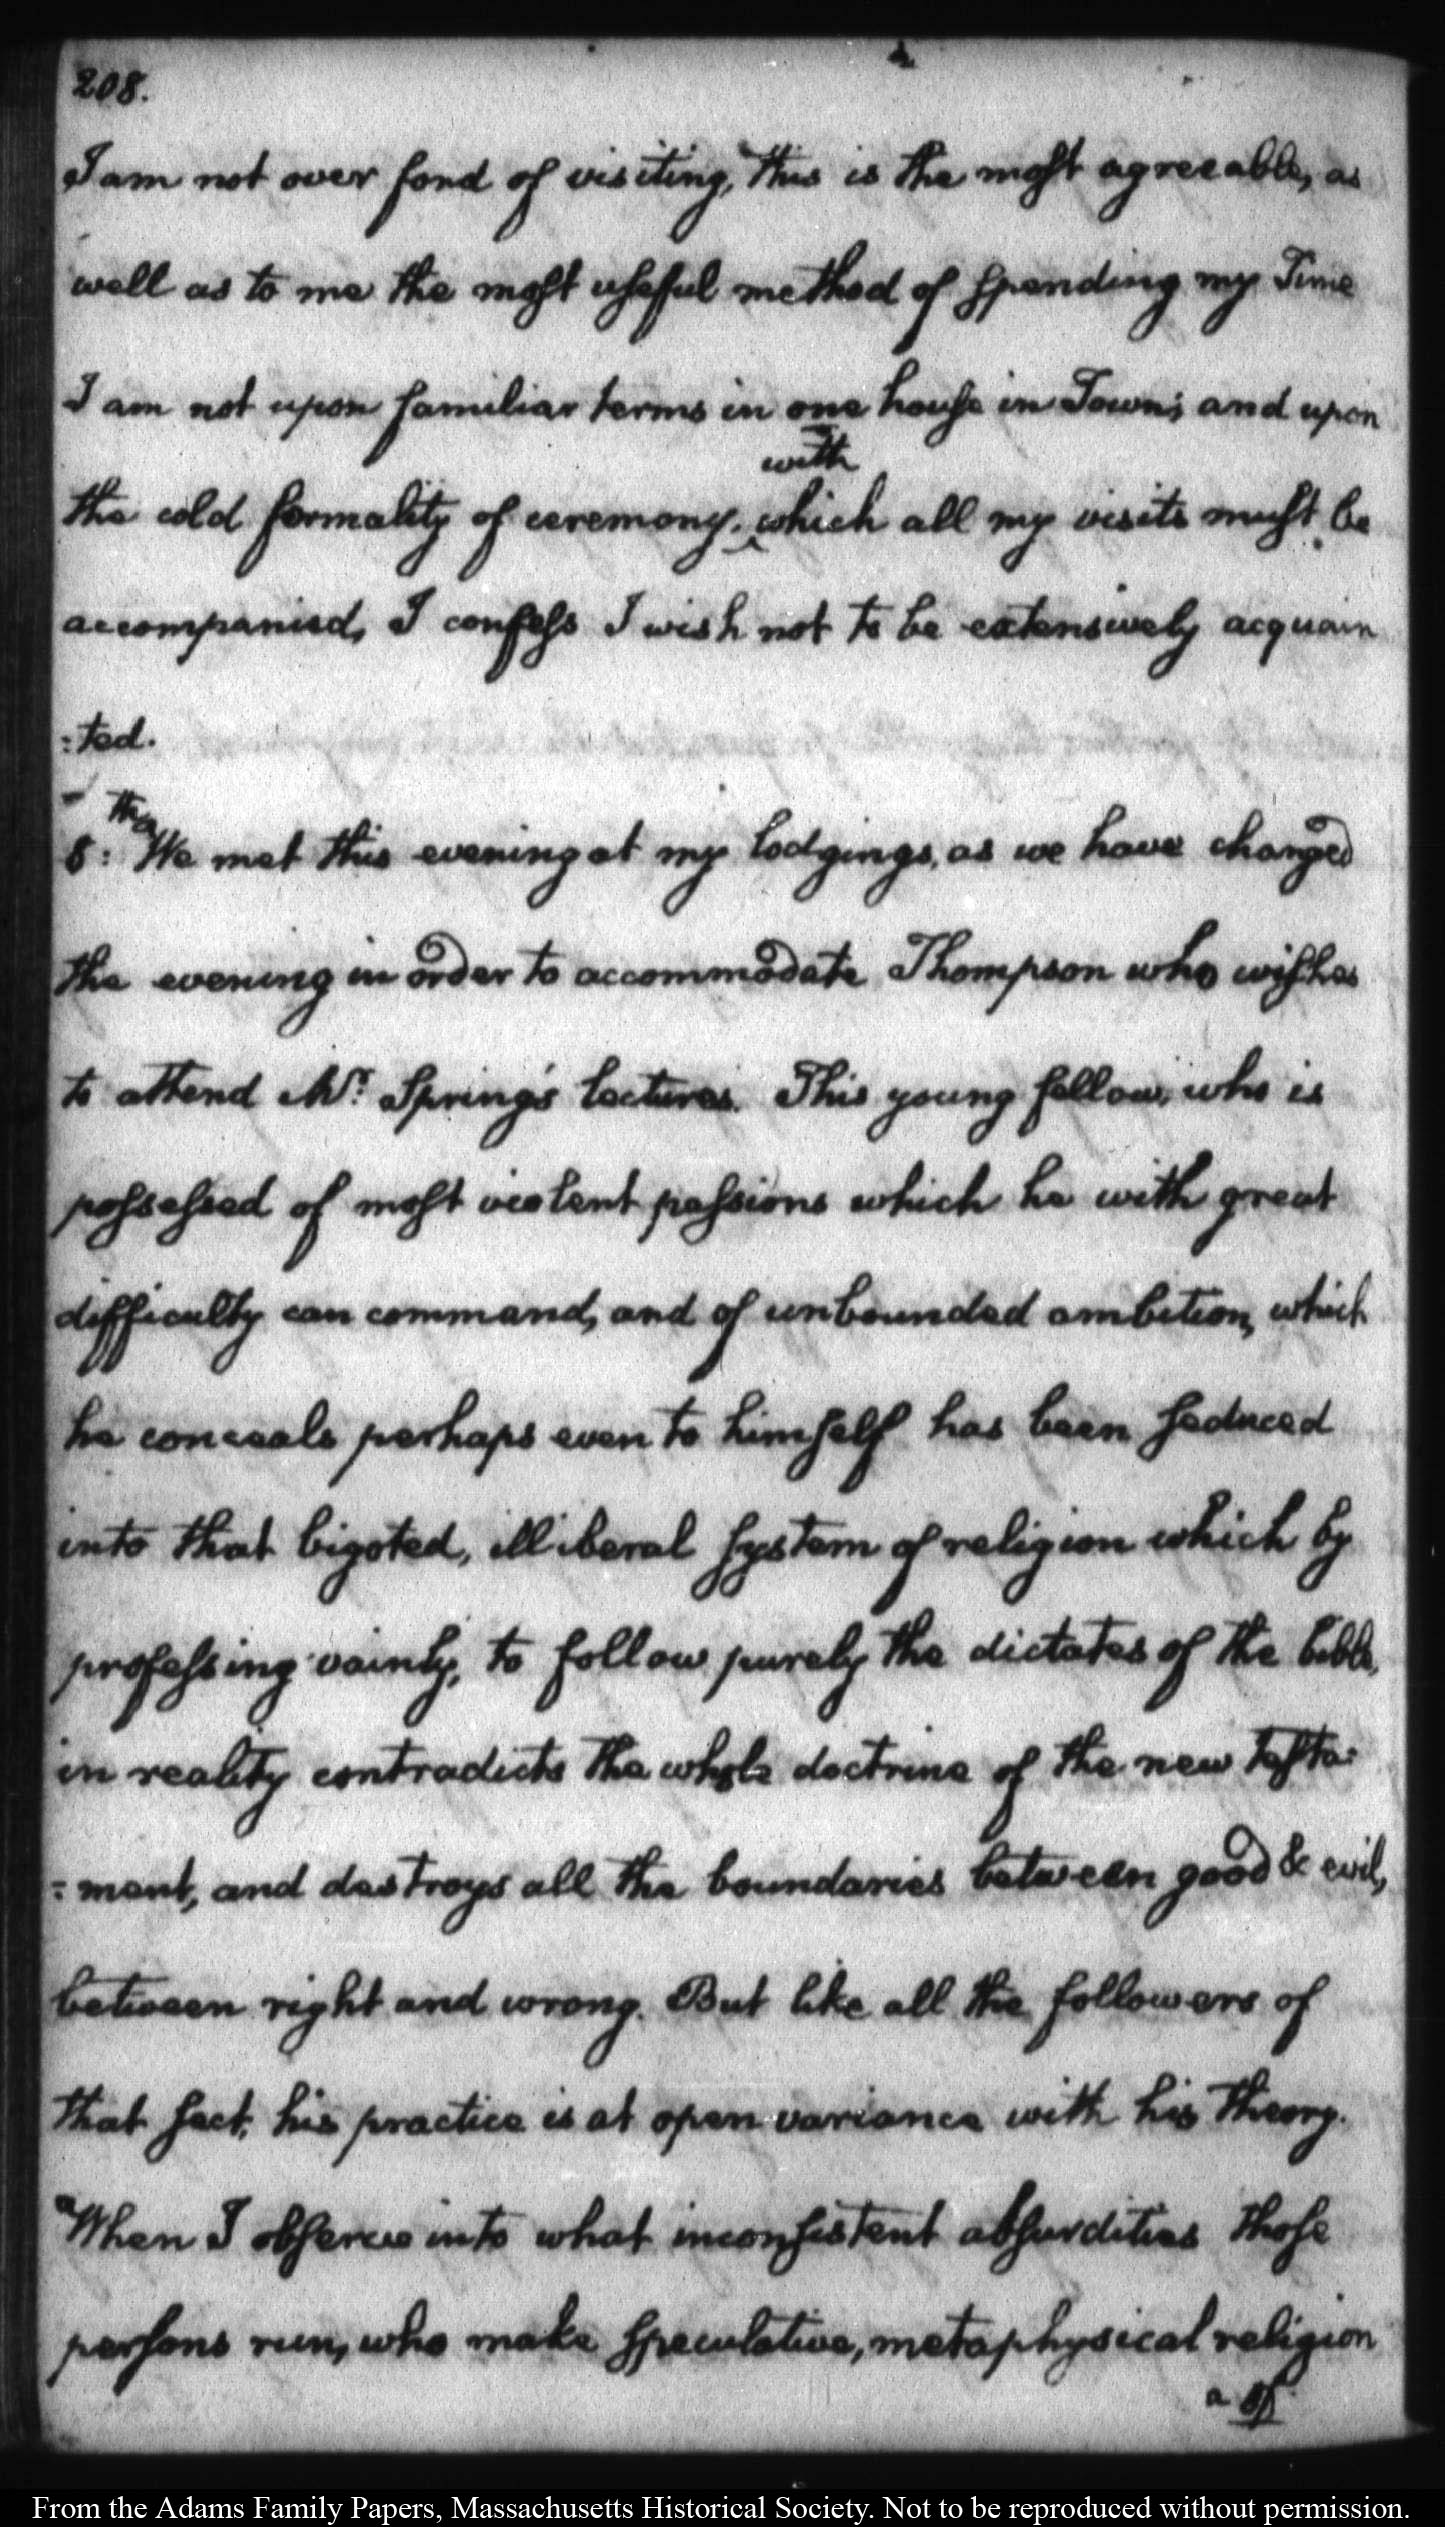 208.
I am not over fond of visiting, this is the most agreeable, as
well as to me the most useful method of spending my Time
I am not upon familiar terms in one house in Town; and upon
with
the cold formality of ceremony, ^ which all my visits must be
accompanied, I confess I wish not to be extensively acquain
:ted.
8:th We met this evening at my lodgings, as we have changed
the evening in order to accommodate Thompson who wishes
to attend Mr. Spring's lectures. This young fellow, who is
possessed of most violent passions which he with great
difficulty can command, and of unbounded ambition, which
he conceals perhaps even to himself has been seduced
into that bigoted, illiberal system of religion which by
professing vainly, to follow purely the dictates of the bible,
in reality contradicts the whole doctrine of the new testa:
:ment, and destroys all the boundaries between good & evil,
between right and wrong. But like all the followers of
that sect, his practice is at open variance with his theory.
When I observe into what inconsistent absurdities those
persons run, who make speculative, metaphysical religion
a
From the Adams Family Papers, Massachusetts Historical Society. Not to be reproduced without permission.